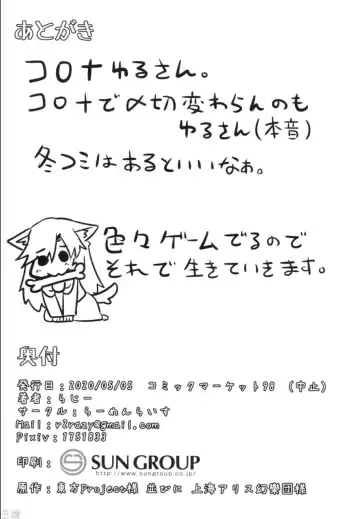 あとがき
コロナゆるさん。
コロナで〆切変わらんのも
ゆるさん(本音)
冬コミはあるといいなぁ。
色々ゲームでるので
それで生きていきます。
奥付
発行日:2020/05/05 コミックマーケット98 (中止)
著者:らじー
サークル:らーめんらいす
Mail:r2razy@gmail.com
Pixiv:1751833
印刷:SUN GROUP
http://www.sungroup.co.jp/
原作:東方Project様 並びに 上海アリス幻樂団様